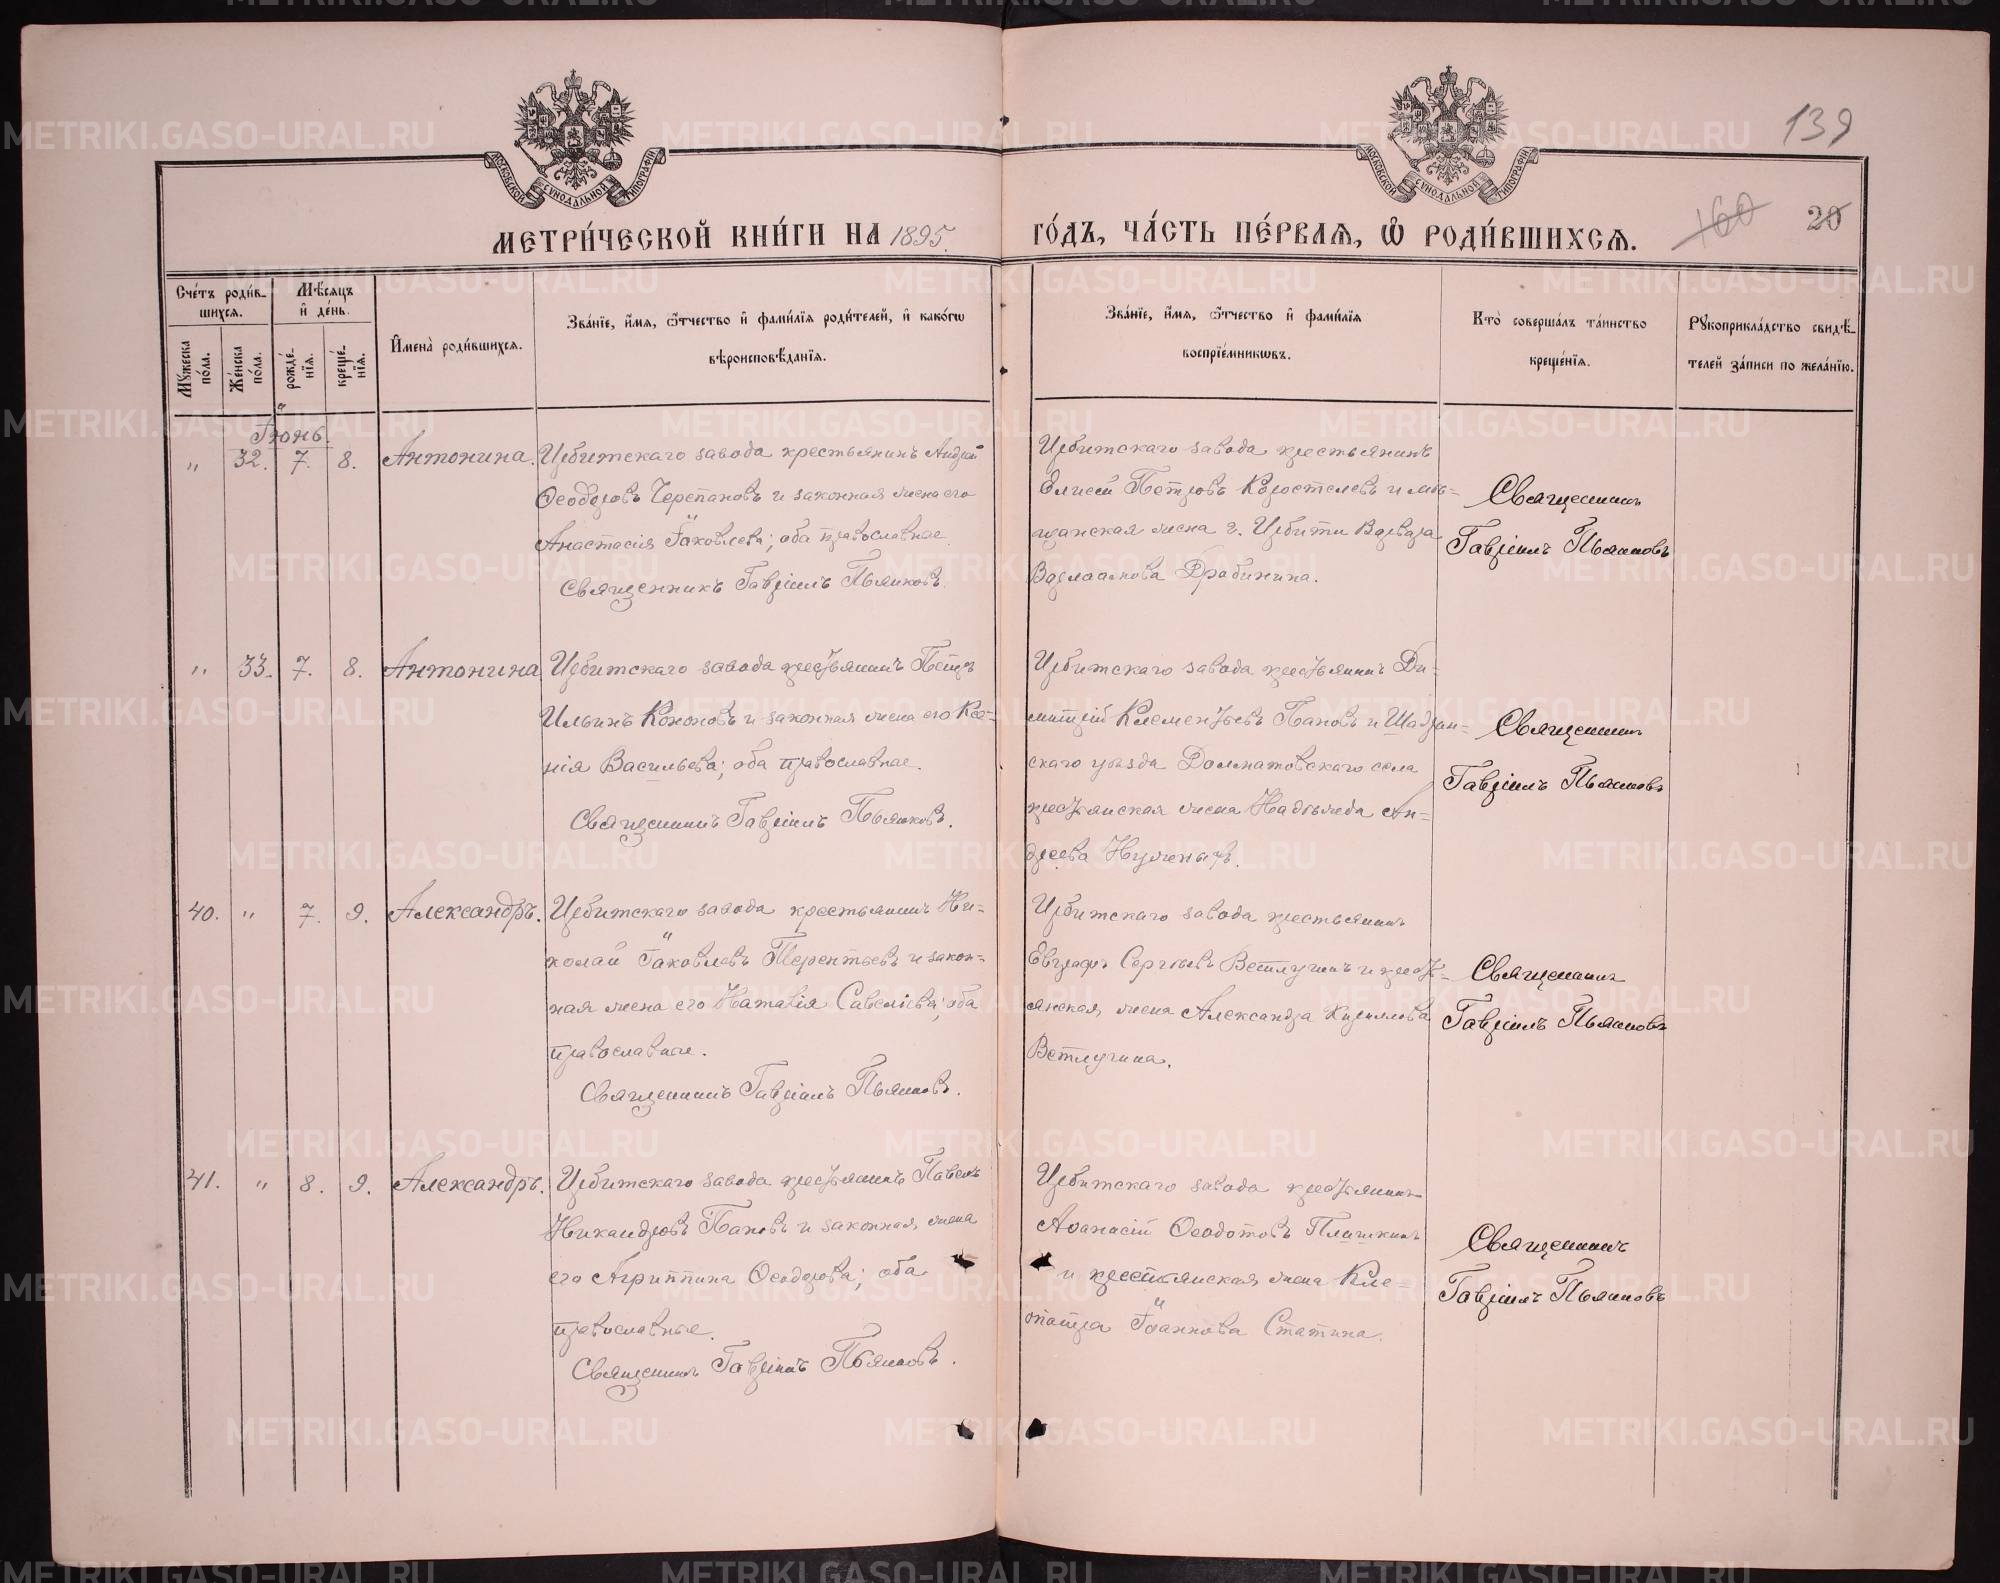 139
МОСКОВСКОЙ СУНОДАЛЬНОЙ ТИПОГРАФІИ
МОСКОВСКОЙ СУНОДАЛЬНОЙ ТИПОГРАФІИ
МЕТРИ́ЧЕСКОЙ КНИ́ГИ НА 1895. ГО́ДЪ, ЧА́СТЬ ПЕ́РВАѦ, Ѡ РОДИ́ВШИХСѦ. 160 20
Сче́тъ роди́в-
шихсѧ.
Мѣ́сѧцъ
и҆ де́нь.
Мꙋ́жеска по́ла.
Же́нска по́ла.
рожде́-нїѧ.
креще́-нїѧ.
И҆мена̀ роди́вшихсѧ.
Зва́нїе, и҆́мѧ, ѻ҆́тчество и҆ фами́лїѧ роди́телей, и҆ како́гѡ
вѣроисповѣ́данїѧ.
Зва́нїе, и҆́мѧ, ѻ҆́тчество и҆ фами́лїѧ
воспрїе́мникѡвъ.
Кто̀ соверша́лъ та́инство
креще́нїѧ.
Рꙋкоприкла́дство свидѣ́-
телей за́писи по жела́нїю.
Іюнь.
„ 32. 7. 8. Антонина.
Ирбитскаго завода крестьянинъ Андрей
Ѳеодоровъ Черепановъ и законная жена его
Анастасія Іаковлева; оба православные.
Священникъ Гавріилъ Пьянковъ.
Ирбитскаго завода крестьянинъ
Елисей Петровъ Коростелевъ и мѣ-
щанская жена г. Ирбити Варвара
Варлаамова Дробинина.
Священникъ
Гавріилъ Пьянковъ
„ 33. 7. 8. Антонина
Ирбитскаго завода крестьянинъ Петръ
Ильинъ Кононовъ и законная жена его Ксе-
нія Васильева; оба православные.
Священникъ Гавріилъ Пьянковъ.
Ирбитскаго завода крестьянинъ Ди-
митрій Клементьевъ Пановъ и Шадрин-
скаго уѣзда Долматовскаго села
крестьянская жена Надѣжда Ан-
дреева
Священникъ
Гавріилъ Пьянковъ
40. „ 7. 9. Александръ.
Ирбитскаго завода крестьянинъ Ни-
колай Іаковлевъ Терентьевъ и закон-
ная жена его Наталія Савеліева; оба
православные.
Священникъ Гавріилъ Пьянковъ.
Ирбитскаго завода крестьянинъ
Евграфъ Сергѣевъ Ветлугинъ и кресть-
янская жена Александра Кириллова
Ветлугина.
Священникъ
Гавріилъ Пьянковъ
41. „ 8. 9. Александръ.
Ирбитскаго завода крестьянинъ Павелъ
Никандровъ Пановъ и законная жена
его Агриппина Ѳеодорова; оба
православные.
Священникъ Гавріилъ Пьянковъ.
Ирбитскаго завода крестьянинъ
Аѳанасій Ѳеодотовъ Плишкинъ
и крестьянская жена Клео-
патра Іоаннова Статина.
Священникъ
Гавріилъ Пьянковъ
METRIKI.GASO-URAL.RU